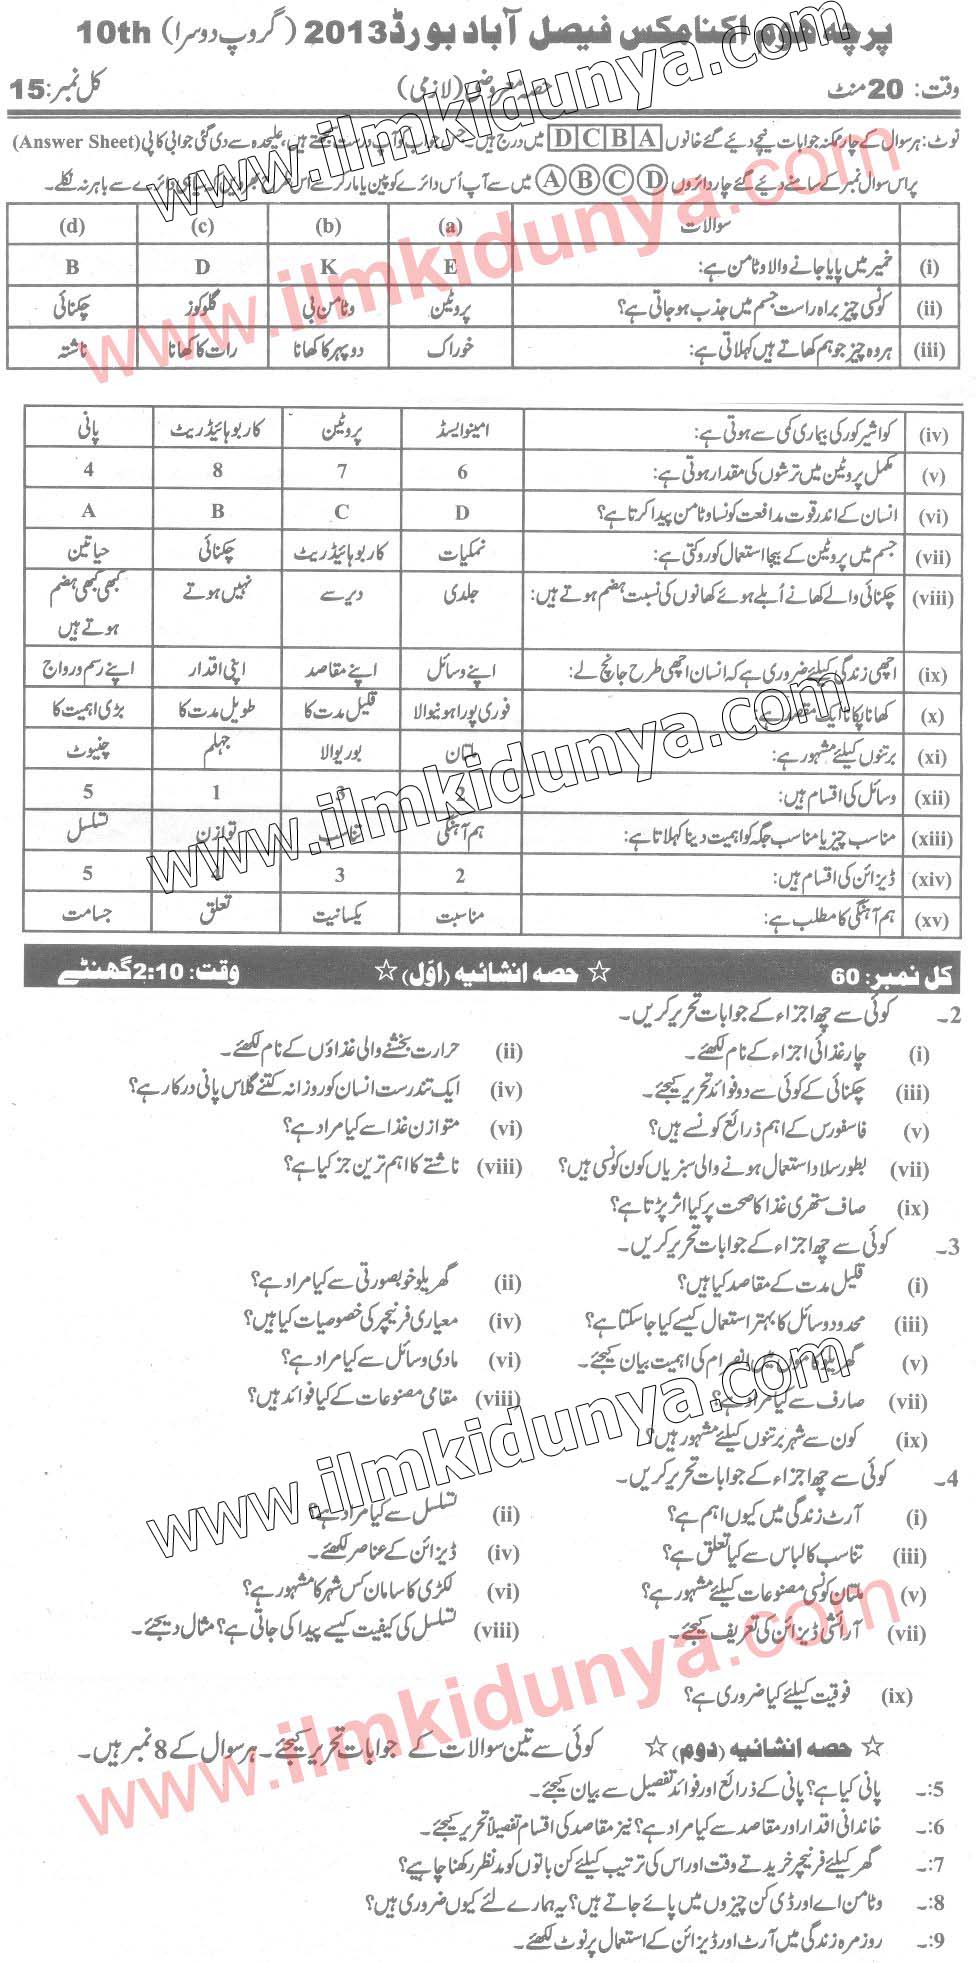 پرچہ ہوم اکنامکس فیصل آباد بورڈ 2013 (گروپ دوسرا) 10th
وقت: 20 منٹ حصہ معروضی (لازمی) کل نمبر: 15
نوٹ: ہر سوال کے چار ممکنہ جوابات نیچے دیئے گئے خانوں D C B A میں درج ہیں جس جواب کو آپ درست سمجھتے ہیں، علیحدہ سے دی گئی جوابی کاپی (Answer Sheet)
پر اس سوال نمبر کے سامنے دیئے گئے چار دائروں A B C D میں سے آپ اُس دائرے کو پین یا مارکر سے اس طرح بھر دیں کہ سیاہی دائرے سے باہر نہ نکلے۔
سوالات (a) (b) (c) (d)
(i) خمیر میں پایا جانے والا وٹامن ہے: E K D B
(ii) کونسی چیز براہ راست جسم میں جذب ہو جاتی ہے؟ پروٹین وٹامن بی گلوکوز چکنائی
(iii) ہر وہ چیز جو ہم کھاتے ہیں کہلاتی ہے: خوراک دوپہر کا کھانا رات کا کھانا ناشتہ
(iv) کواشیرکور کی بیماری کمی سے ہوتی ہے: امینو ایسڈ پروٹین کاربوہائیڈریٹ پانی
(v) مکمل پروٹین میں ترشوں کی مقدار ہوتی ہے: 6 7 8 4
(vi) انسان کے اندر قوت مدافعت کونسا وٹامن پیدا کرتا ہے؟ D C B A
(vii) جسم میں پروٹین کے بیجا استعمال کو روکتی ہے: نمکیات کاربوہائیڈریٹ چکنائی حیاتین
(viii) چکنائی والے کھانے اُبلے ہوئے کھانوں کی نسبت ہضم ہوتے ہیں: جلدی دیر سے نہیں ہوتے کبھی کبھی ہضم ہوتے ہیں
(ix) اچھی زندگی کیلئے ضروری ہے کہ انسان اچھی طرح جانچ لے: اپنے وسائل اپنے مقاصد اپنی اقدار اپنے رسم و رواج
(x) کھانا پکانا ایک مقصد ہے: فوری پورا ہونیوالا قلیل مدت کا طویل مدت کا بڑی اہمیت کا
(xi) برتنوں کیلئے مشہور ہے: ملتان بوریوالا جہلم چنیوٹ
(xii) وسائل کی اقسام ہیں: 2 3 1 5
(xiii) مناسب چیز یا مناسب جگہ کو اہمیت دینا کہلاتا ہے: ہم آہنگی تناسب توازن تسلسل
(xiv) ڈیزائن کی اقسام ہیں: 2 3 4 5
(xv) ہم آہنگی کا مطلب ہے: مناسبت یکسانیت تعلق جسامت
کل نمبر: 60 ☆ حصہ انشائیہ (اوّل) ☆ وقت: 2:10 گھنٹے
2۔ کوئی سے چھ اجزاء کے جوابات تحریر کریں۔
(i) چار غذائی اجزاء کے نام لکھئے۔ (ii) حرارت بخشنے والی غذاؤں کے نام لکھئے۔
(iii) چکنائی کے کوئی سے دو فوائد تحریر کیجئے۔ (iv) ایک تندرست انسان کو روزانہ کتنے گلاس پانی درکار ہے؟
(v) فاسفورس کے اہم ذرائع کونسے ہیں؟ (vi) متوازن غذا سے کیا مراد ہے؟
(vii) بطور سلاد استعمال ہونے والی سبزیاں کون کونسی ہیں؟ (viii) ناشتے کا اہم ترین جز کیا ہے؟
(ix) صاف ستھری غذا کا صحت پر کیا اثر پڑتا ہے؟
3۔ کوئی سے چھ اجزاء کے جوابات تحریر کریں۔
(i) قلیل مدت کے مقاصد کیا ہیں؟ (ii) گھریلو خوبصورتی سے کیا مراد ہے؟
(iii) محدود وسائل کا بہتر استعمال کیسے کیا جاسکتا ہے؟ (iv) معیاری فرنیچر کی خصوصیات کیا ہیں؟
(v) گھریلو کاموں میں انصرام کی اہمیت بیان کیجئے۔ (vi) مادی وسائل سے کیا مراد ہے؟
(vii) صارف سے کیا مراد ہے؟ (viii) مقامی مصنوعات کے کیا فوائد ہیں؟
(ix) کون سے شہر برتنوں کیلئے مشہور ہیں؟
4۔ کوئی سے چھ اجزاء کے جوابات تحریر کریں۔
(i) آرٹ زندگی میں کیوں اہم ہے؟ (ii) تسلسل سے کیا مراد ہے؟
(iii) تناسب کا لباس سے کیا تعلق ہے؟ (iv) ڈیزائن کے عناصر لکھئے۔
(v) ملتان کونسی مصنوعات کیلئے مشہور ہے؟ (vi) لکڑی کا سامان کس شہر کا مشہور ہے؟
(vii) آرائشی ڈیزائن کی تعریف کیجئے۔ (viii) تسلسل کی کیفیت کیسے پیدا کی جاتی ہے؟ مثال دیجئے۔
(ix) فوقیت کیلئے کیا ضروری ہے؟
☆ حصہ انشائیہ (دوم) ☆ کوئی سے تین سوالات کے جوابات تحریر کیجئے۔ ہر سوال کے 8 نمبر ہیں۔
5:۔ پانی کیا ہے؟ پانی کے ذرائع اور فوائد تفصیل سے بیان کیجئے۔
6:۔ خاندانی اقدار اور مقاصد سے کیا مراد ہے؟ نیز مقاصد کی اقسام تفصیلاً تحریر کیجئے۔
7:۔ گھر کیلئے فرنیچر خریدتے وقت اور اس کی ترتیب کیلئے کن باتوں کو مدنظر رکھنا چاہیے؟
8:۔ وٹامن اے اور ڈی کن چیزوں میں پائے جاتے ہیں؟ یہ ہمارے لئے کیوں ضروری ہیں؟
9:۔ روزمرہ زندگی میں آرٹ اور ڈیزائن کے استعمال پر نوٹ لکھئے۔
www.ilmkidunya.com
www.ilmkidunya.com
www.ilmkidunya.com
www.ilmkidunya.com
www.ilmkidunya.com